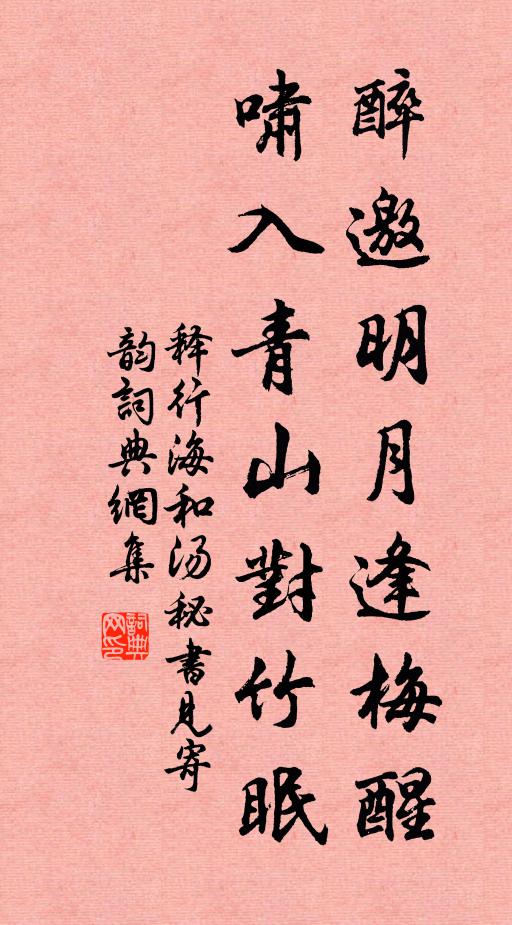 醉邀明月逢梅醒
啸入青山對竹眠
释行海和汤秘書見寄
韵詞典網集
詞典
网印